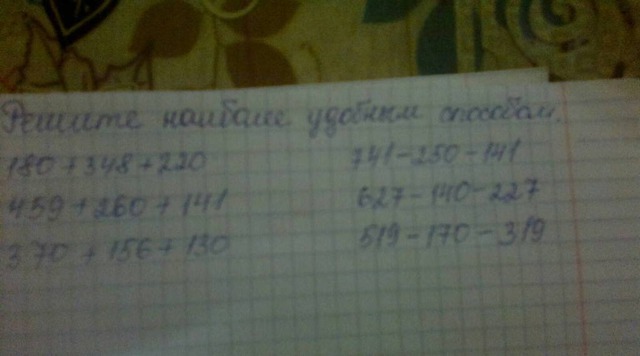 Решите наиболе удобным способом.
180+348+220 741-250-141
459+260+141 627-140-227
370+156+130 519-170-319